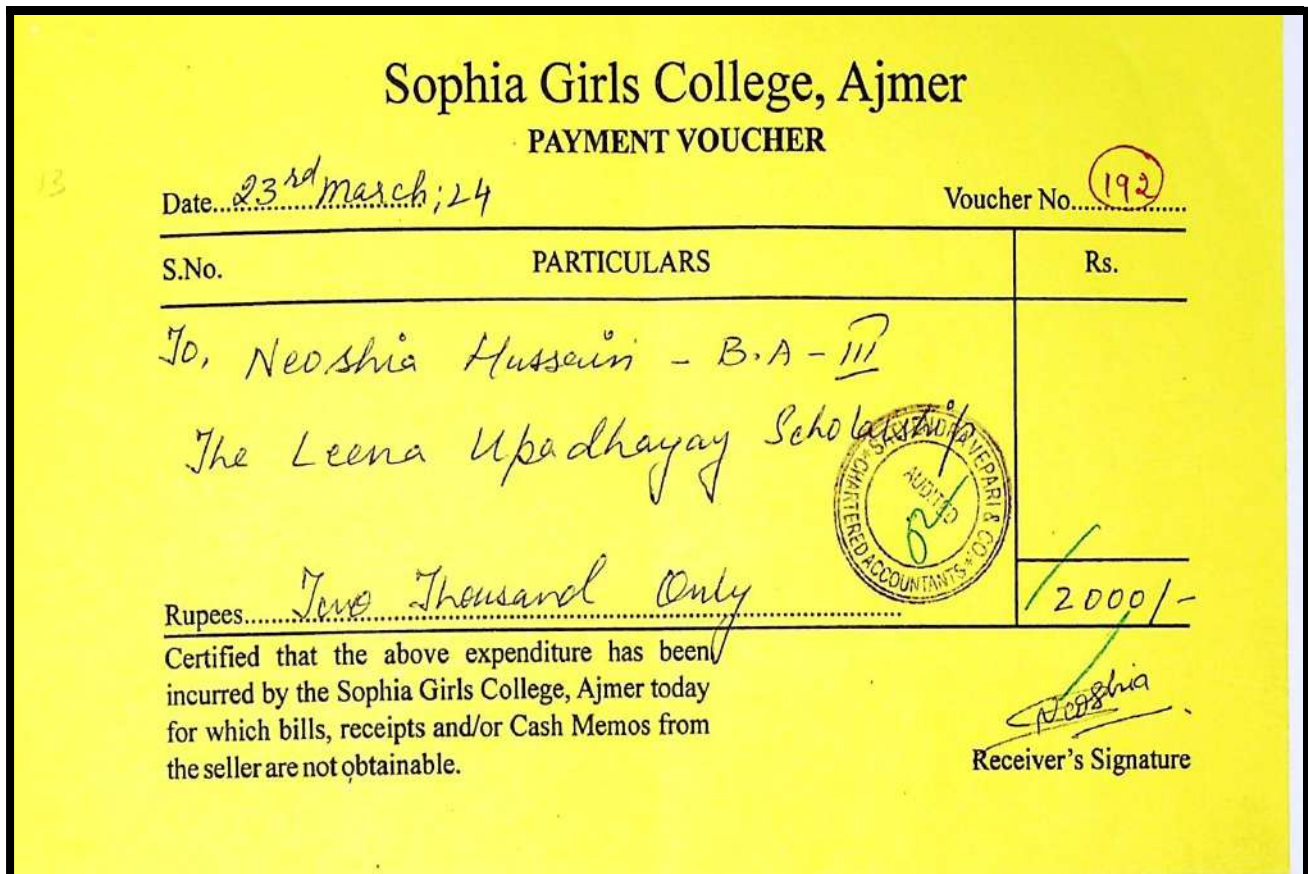 Sophia Girls College, Ajmer
PAYMENT VOUCHER
13
Date...23rd March; 24
Voucher No....192
S.No. PARTICULARS Rs.
To, Neoshia Hussain - B.A - III
The Leena Upadhayay Scholarship
CHARTERED ACCOUNTANTS & VEPARI & CO.
AUDITED
Rupees....Two Thousand Only 2000/-
Certified that the above expenditure has been
incurred by the Sophia Girls College, Ajmer today
for which bills, receipts and/or Cash Memos from
the seller are not obtainable.
Neoshia
Receiver's Signature